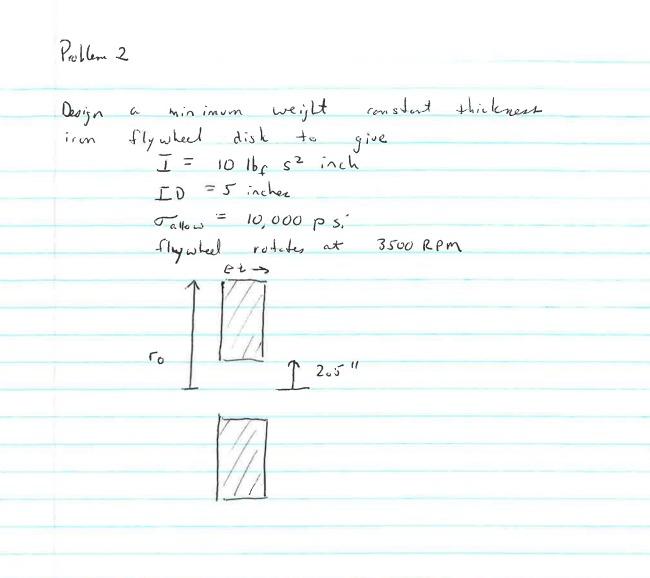 Problem 2
Design a minimum weight constant thickness
iron flywheel disk to give
I = 10 lbf s² inch
ID = 5 inches
σallow = 10,000 psi
flywheel rotates at 3500 RPM
← t →
ro
2.5"